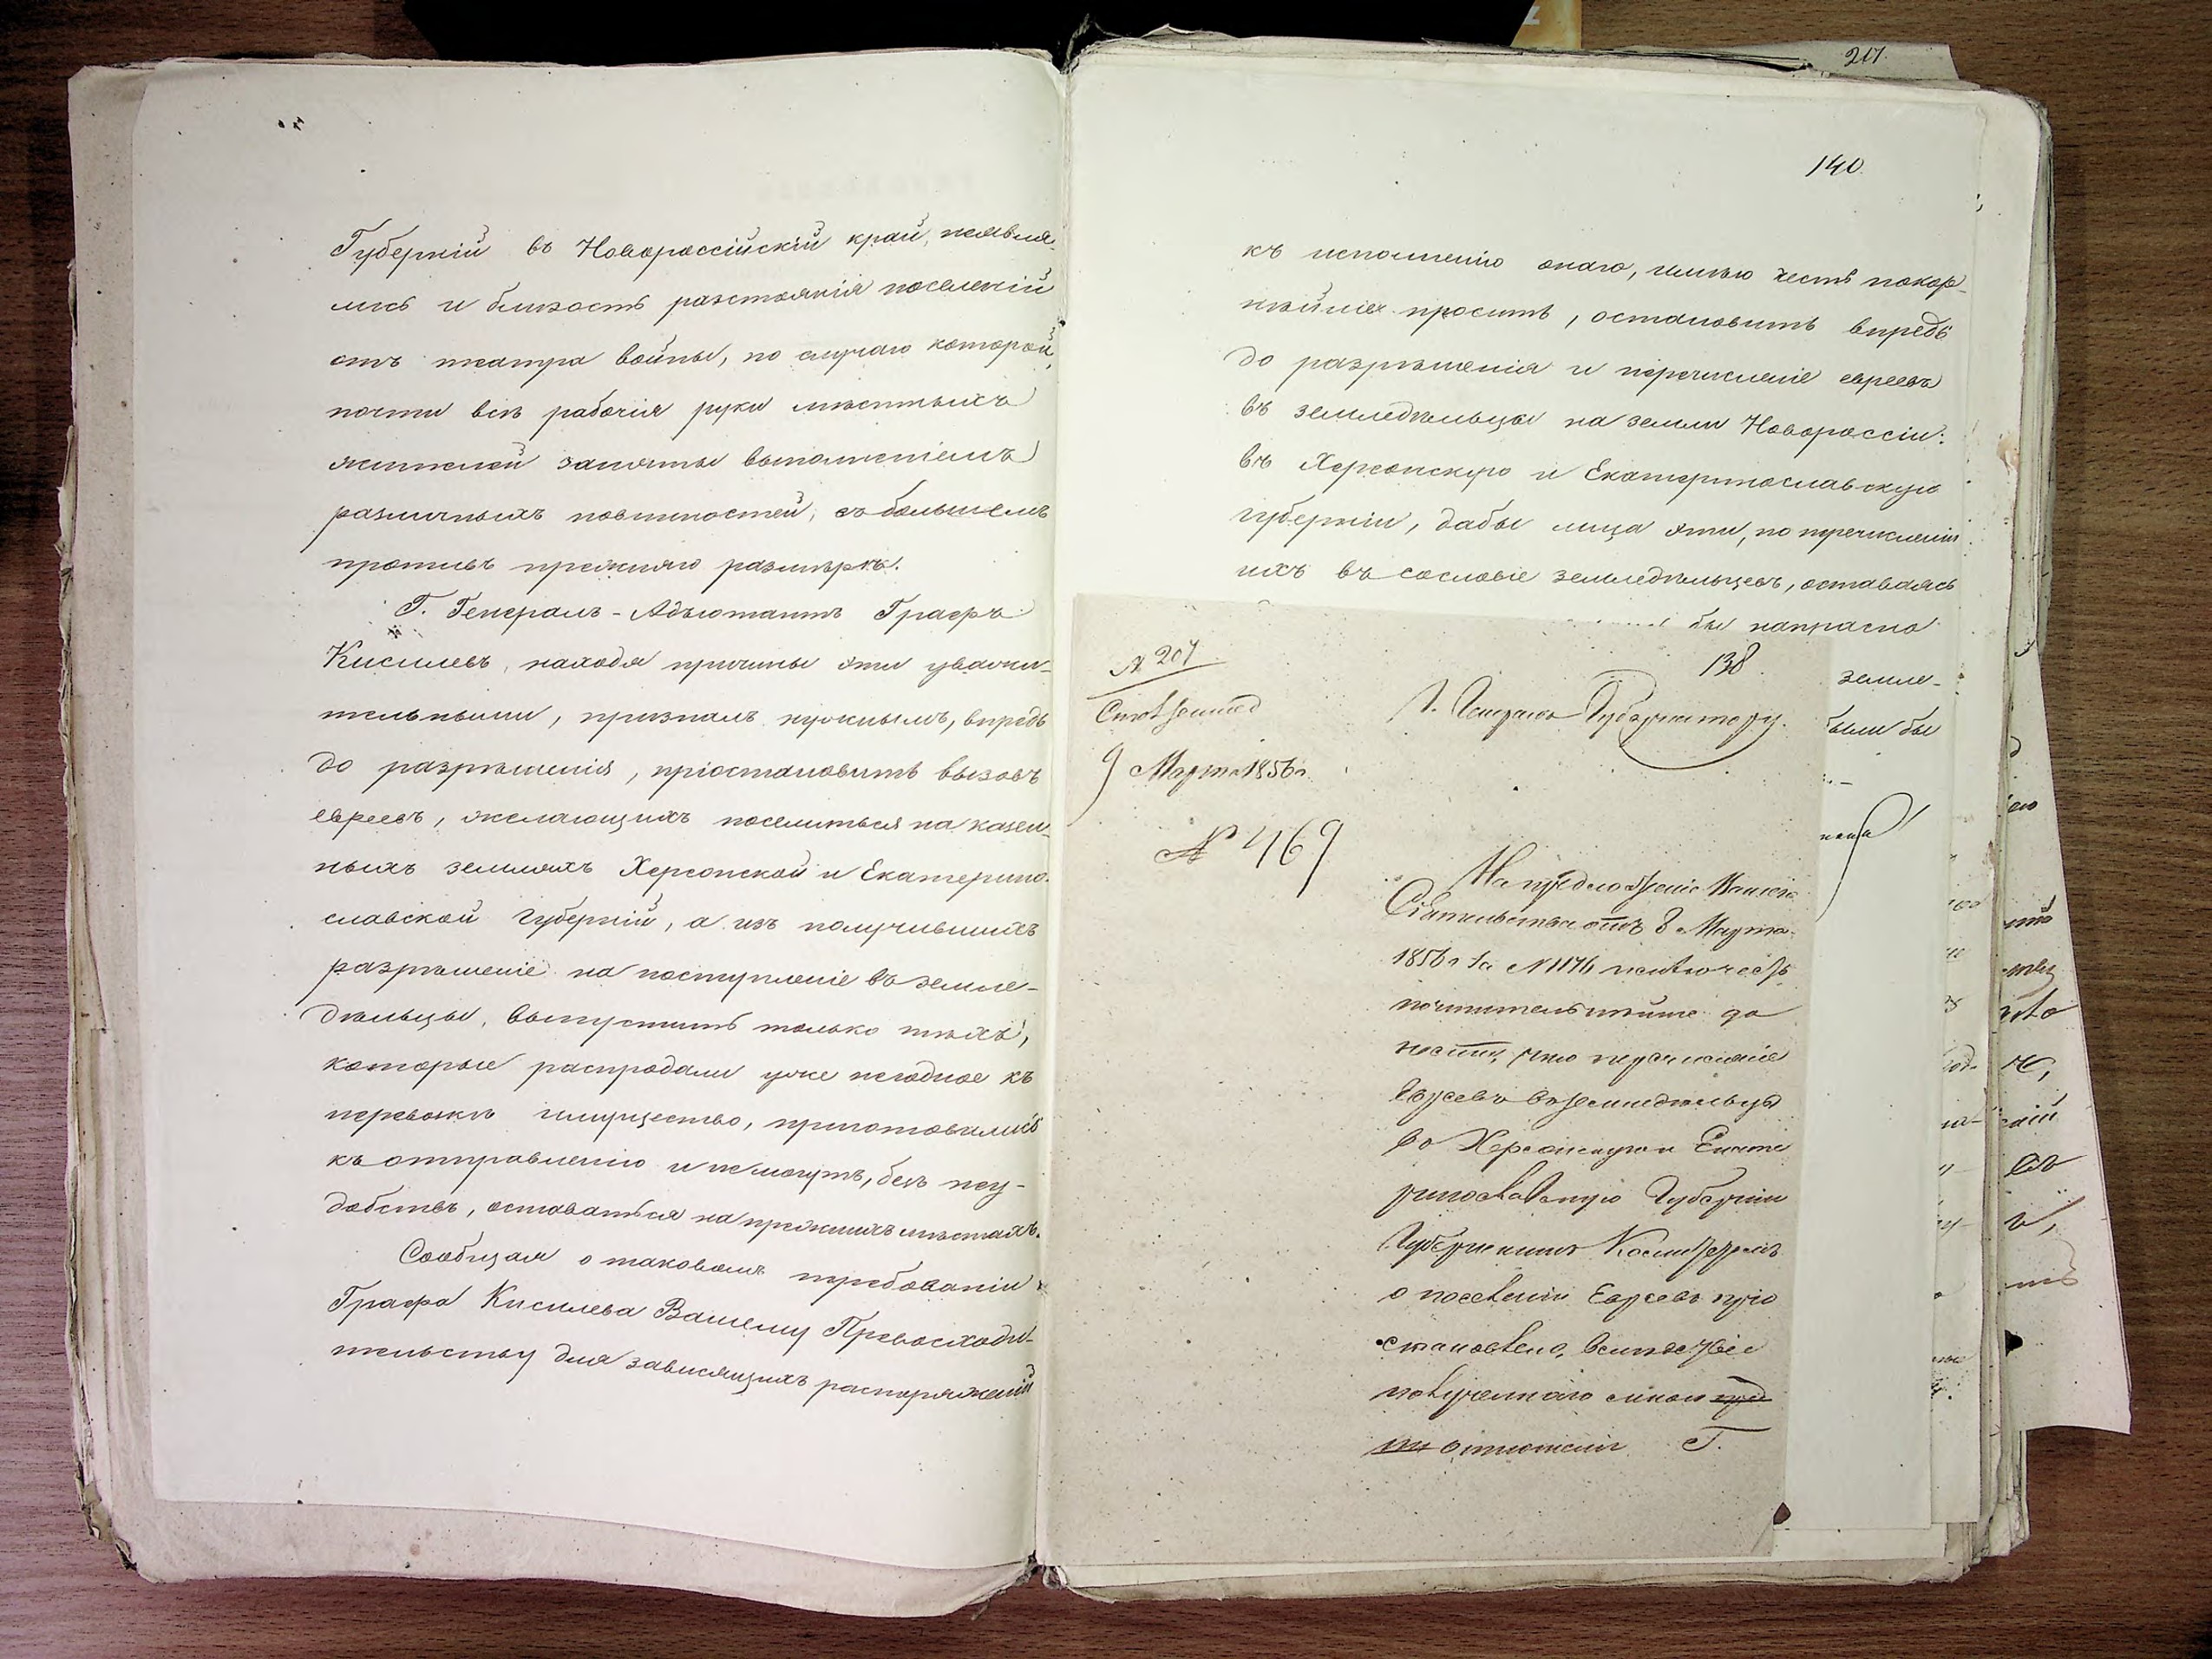 Губерній въ Новороссійскій край, являя-
лись и близость разстоянія поселеній
отъ театра войны, по случаю которой,
почти всѣ рабочія руки мѣстныхъ
жителей заняты выполненіемъ
различныхъ повинностей, въ большемъ
противъ прежняго размѣрѣ.
Г. Генералъ-Адъютантъ Графъ
Киселевъ, находя причины эти уважи-
тельными, призналъ нужнымъ, впредь
до разрѣшенія, пріостановить вызовъ
евреевъ, желающихъ поселиться на казен-
ныхъ земляхъ Херсонской и Екатерино-
славской Губерній, а изъ получившихъ
разрѣшеніе на поступленіе въ земле-
дѣльцы, выпустить только тѣхъ,
которые распродали уже негодное къ
перевозкѣ имущество, приготовились
къ отправленію и не могутъ, безъ неу-
добствъ, оставаться на прежнихъ мѣстахъ.
Сообщая о таковомъ требованіи
Графа Киселева Вашему Превосходи-
тельству для зависящихъ распоряженій
217.
140.
къ исполненію онаго, имѣю честь покор-
нѣйше просить, остановить впредь
до разрѣшенія и перечисленіе евреевъ
въ земледѣльцы на земли Новороссіи:
въ Херсонскую и Екатеринославскую
губерніи, дабы лица эти, по перечисленіи
ихъ въ сословіе земледѣльцевъ, оставаясь
бы напрасно
земле-
были бы
№ 207
9 Марта 1856 г.
№ 469
138.
Г. Генералъ Губернатору.
На предложеніе Вашего
Сіятельства отъ 8 Марта
1856 г. за № 1176 имѣю честь
почтительнѣйше до
нести, что перечисленіе
Евреевъ въ земледѣльцы
въ Херсонскую и Екате
ринославскую Губерніи
о поселеніи Евреевъ пріо
становлено, вслѣдствіе
полученнаго мною пред
отношенія Г.